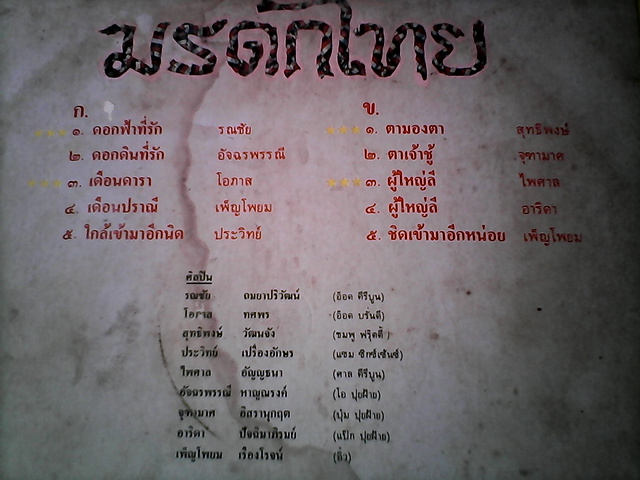 มรดกไทย
ก.
๑. ดอกฟ้าที่รัก รณชัย
๒. ดอกดินที่รัก อัจฉรพรรณี
๓. เดือนดารา โอภาส
๔. เดือนปราณี เพ็ญโพยม
๕. ใกล้เข้ามาอีกนิด ประวิทย์
ข.
๑. ตามองตา สุทธิพงษ์
๒. ตาเจ้าชู้ จุฑามาศ
๓. ผู้ใหญ่ลี ไพศาล
๔. ผู้ใหญ่ลี อาริดา
๕. ชิดเข้ามาอีกหน่อย เพ็ญโพยม
ศิลปิน
รณชัย ถมยาปริวัฒน์ (อ๊อด คีรีบูน)
โอภาส ทศพร (อ๊อด บรั่นดี)
สุทธิพงษ์ วัฒนจัง (ชมพู ฟรุ๊ตตี้)
ประวิทย์ เปรื่องอักษร (แซม ซิกซ์เซ้นซ์)
ไพศาล อัญญธนา (ศาล คีรีบูน)
อัจฉรพรรณี หาญณรงค์ (โอ ปุยฝ้าย)
จุฑามาศ อิสรานุกฤต (ปุ้ม ปุยฝ้าย)
อาริดา ปัจฉิมาภิรมย์ (แป๊ก ปุยฝ้าย)
เพ็ญโพยม เรืองโรจน์ (ติ๋ว)